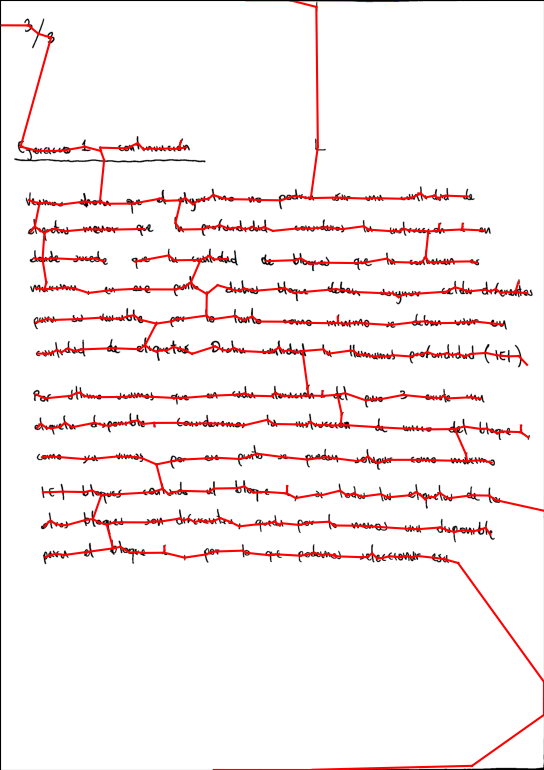 3/3
Ejercicio 1 continuación
Veamos ahora que el algoritmo no podrá usar una cantidad de
etiquetas mayor que la profundidad consideremos la intersección en
donde sucede que la cantidad de bloques que la contienen es
máxima en ese punto dichos bloques deben
para su por lo tanto como mínimo se deben usar esa
cantidad de etiquetas Dicha cantidad la llamamos profundidad (|E|)
Por último veamos que en cada iteración del paso 3 existe una
etiqueta disponible consideremos la intersección de inicio del bloque I
como ya vimos por ese punto se pueden como máximo
|E| bloques el bloque I, si todas las etiquetas de los
otros bloques son diferentes queda por lo menos una disponible
para el bloque I, por lo que podemos seleccionar esa